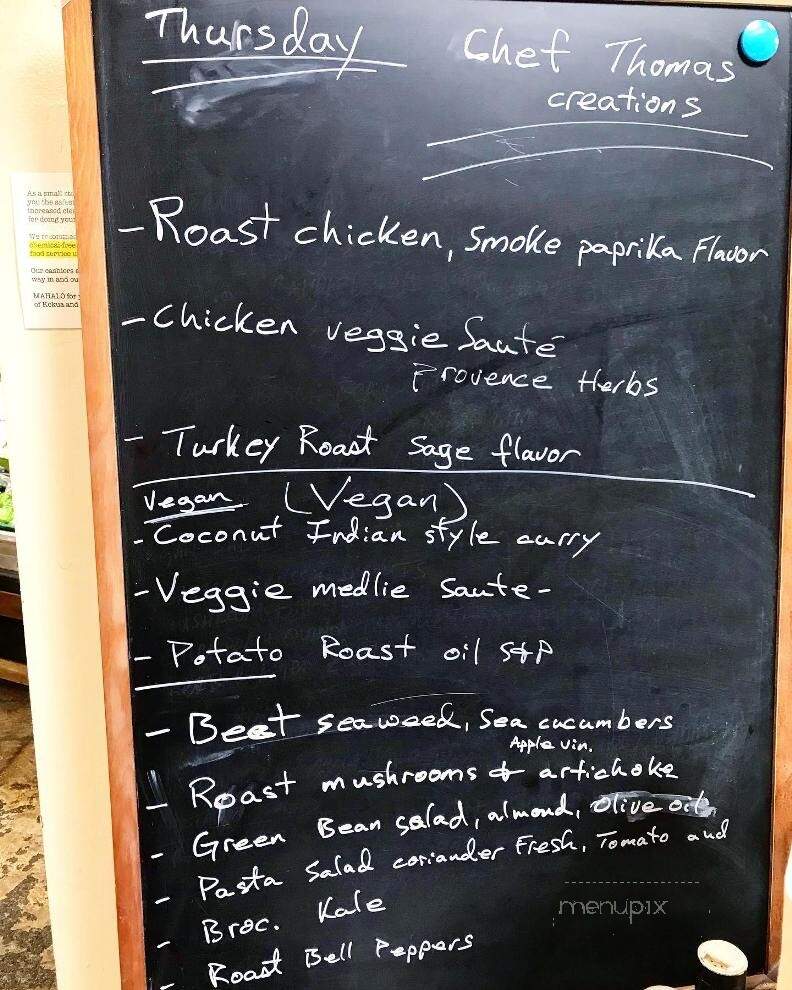 Thursday
Chef Thomas
creations
- Roast chicken, Smoke paprika Flavor
- Chicken veggie Sauté
Provence Herbs
- Turkey Roast sage flavor
Vegan (Vegan)
- Coconut Indian style curry
- Veggie medlie saute -
- Potato Roast oil S+P
- Beet seaweed, Sea cucumbers
Apple vin.
- Roast mushrooms & artichoke
- Green Bean salad, almond, olive oil,
- Pasta Salad coriander Fresh, Tomato and
- Broc. Kale
- Roast Bell Peppers
As a small
you the safest
increased
for doing your
We
chemical-free
food service
Our cashiers
way in and
MAHALO for
of Kokua and
menupix